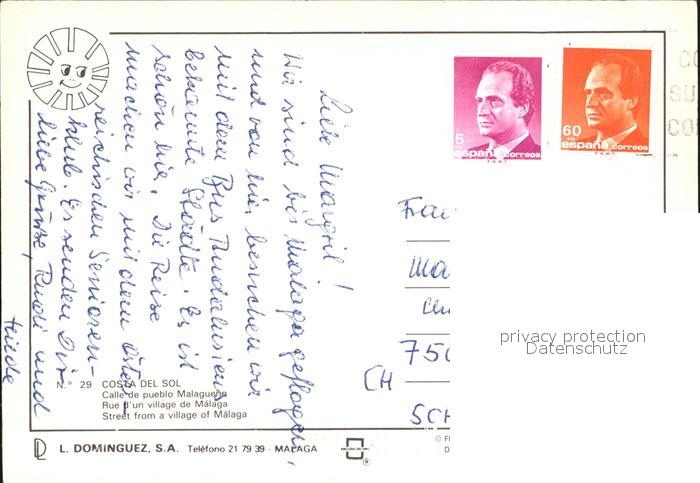 Liebe Margrit!
Wir sind bis Malaga geflogen,
und von hier besuchen wir
mit dem Bus Andalusiens
bekannte Städte. Es ist
schön hier. Die Reise
machen wir mit dem öster-
reichischen Senioren-
klub. Es senden Dir
liebe Grüsse, Rudi und
Heide
5
españa correos
60
españa correos
Frau
Ma
CH
SCH
privacy protection
Datenschutz
N.° 29 COSTA DEL SOL
Calle de pueblo Malagueño
Rue d'un village de Málaga
Street from a village of Málaga
L. DOMINGUEZ, S.A. Teléfono 21 79 39 - MALAGA